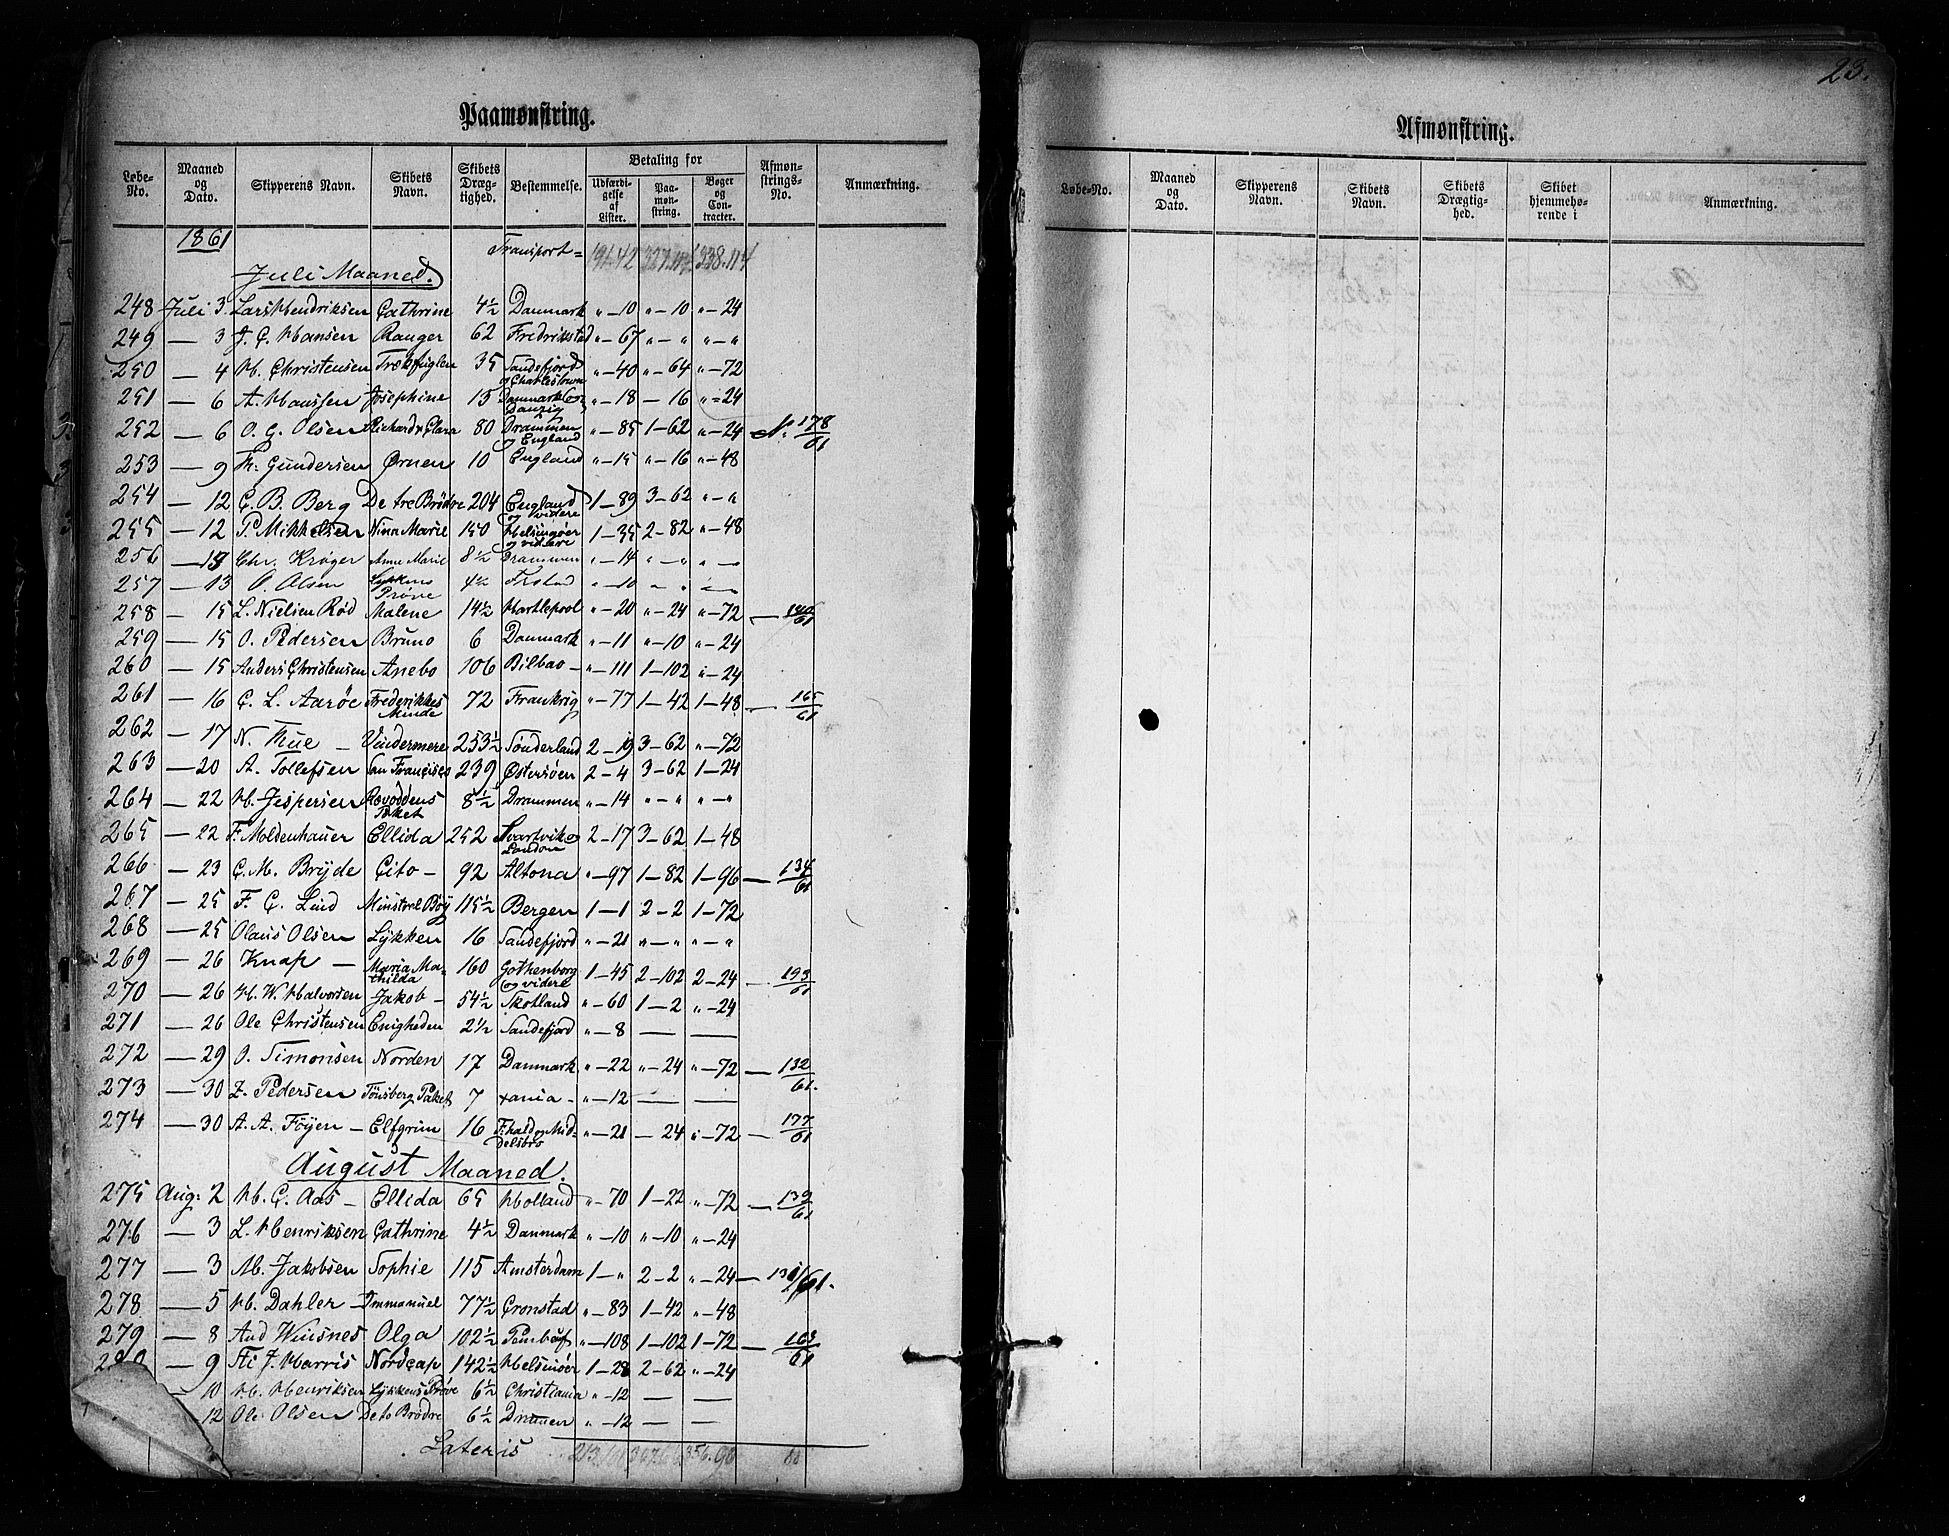 23.
Paamønstring.
Løbe-No. Maaned og Dato. Skipperens Navn. Skibets Navn. Skibets Dræg-tighed. Bestemmelse. Betaling for Udfærdi-gelse af Lister. Paa-møn-string. Bøger og Con-tracter. Afmøn-strings-No. Anmærkning.
1861 Transport =
Juli Maaned.
248 Juli 3 Lars Hendriksen Cathrine 4½ Danmark " - 10 " - 10 " - 24
249 — 3 J. C. Hansen Ranger 62 Fredrikstad " - 67 " - " " - "
250 — 4 H. Christensen Trækfuglen 35 Sandefjord og Charlestown " - 40 " - 64 " - 72
251 — 6 A. Hanssen Josephine 15 Danmark og Danzig " - 18 — 16 " - 24
252 — 6 O. G. Olsen Richard & Clara 80 Drammen og England " - 85 1 - 62 " - 24 No 178/61
253 — 9 Th. Gundersen Ørnen 10 England " - 15 " - 16 " - 48
254 — 12 C. B. Berg De tre Brødre 204 England og videre 1 - 89 3 - 62 " - "
255 — 12 P. Mikkelsen Nina Marie 150 Helsingøer og videre 1 - 35 2 - 82 " - 48
256 — 13 Chr. Krøger Anne Marie 8½ Drammen " - 14 " - " " - "
257 — 13 O. Olsen Lykkens Prøve 4½ Frstad " - 10 " - " " —
258 — 15 L. Nielsen Rød Malene 14½ Hartlepool " - 20 " - 24 " - 72 — 140/61
259 — 15 O. Pedersen Bruno 6 Danmark " - 11 " - 10 " - 24
260 — 15 Anders Christensen Anebo 106 Bilbao - " - 111 1 - 102 " - 24
261 — 16 C. L. Aarøe Frederikkes Minde 72 Frankrig " - 77 1 - 42 1 - 48 — 165/61
262 — 17 N. Thue - Vindermere 253½ Sønderland 2 - 19 3 - 62 " - 72
263 — 20 A. Tollefsen San Francisco 239 Østersøen 2 - 4 3 - 62 1 - 24
264 — 22 H. Jespersen Rævoddens Paket 8½ Drammen " - 14 " - " " - "
265 — 22 F. Moldenhauer Ellida 252 Svartvik og London 2 - 17 3 - 62 1 - 48
266 — 23 C. M. Bryde Cito - 92 Altona " - 97 1 - 82 1 - 96 — 134/61
267 — 25 F. C. Lind Minstrel Boy 115½ Bergen 1 - 1 2 - 2 1 - 72
268 — 25 Olaus Olsen Lykken 16 Sandefjord " - 21 " - " " - "
269 — 26 Knap — Maria Ma-thilda 160 Gothenborg og videre 1 - 45 2 - 102 2 - 24 — 193/61
270 — 26 H. W. Halvorsen Jakob - 54½ Skotland " - 60 1 - 2 " - 24
271 — 26 Ole Christensen Enigheden 2½ Sandefjord " - 8 — —
272 — 29 O. Simonsen Norden 17 Danmark " - 22 " - 24 " - 72 — 132/61.
273 — 30 Z. Pedersen Tönsberg Paket 7 xania - " - 12 — —
274 — 30 A. A. Föyen - Elfgrim 16 Fr.hald og Mid-delsbro " - 21 — 24 " - 72 — 177/61
August Maaned.
275 Aug: 2 H. C. Aas - Ellida 65 Holland " - 70 1 - 22 " - 72 — 139/61
276 — 3 L. Henriksen Cathrine 4½ Danmark " - 10 " - 10 " - 24
277 — 3 Ab. Jakobsen Sophie 115 Amsterdam 1 - " 2 - 2 " - 24 —
278 — 5 H. Dahler - Immanuel 77½ Cronstad " - 83 1 - 42 " - 48
279 — 8 And Winsnes Olga 102½ " - 108 1 - 102 1 - 72 — 163/61
— 9 J. Harris Nordcap 142½ Helsinøer 1 - 28 2 - 62 " - 24
10 H. Henriksen Lykkens Prøve 6½ Christiania " - 12 — —
12 Ole Olsen De to Brödre 6½ Drammen " - 12 — —
Lateris
Afmønstring.
Løbe-No. Maaned og Dato. Skipperens Navn. Skibets Navn. Skibets Drægtig-hed. Skibet hjemmehø-rende i Anmærkning.